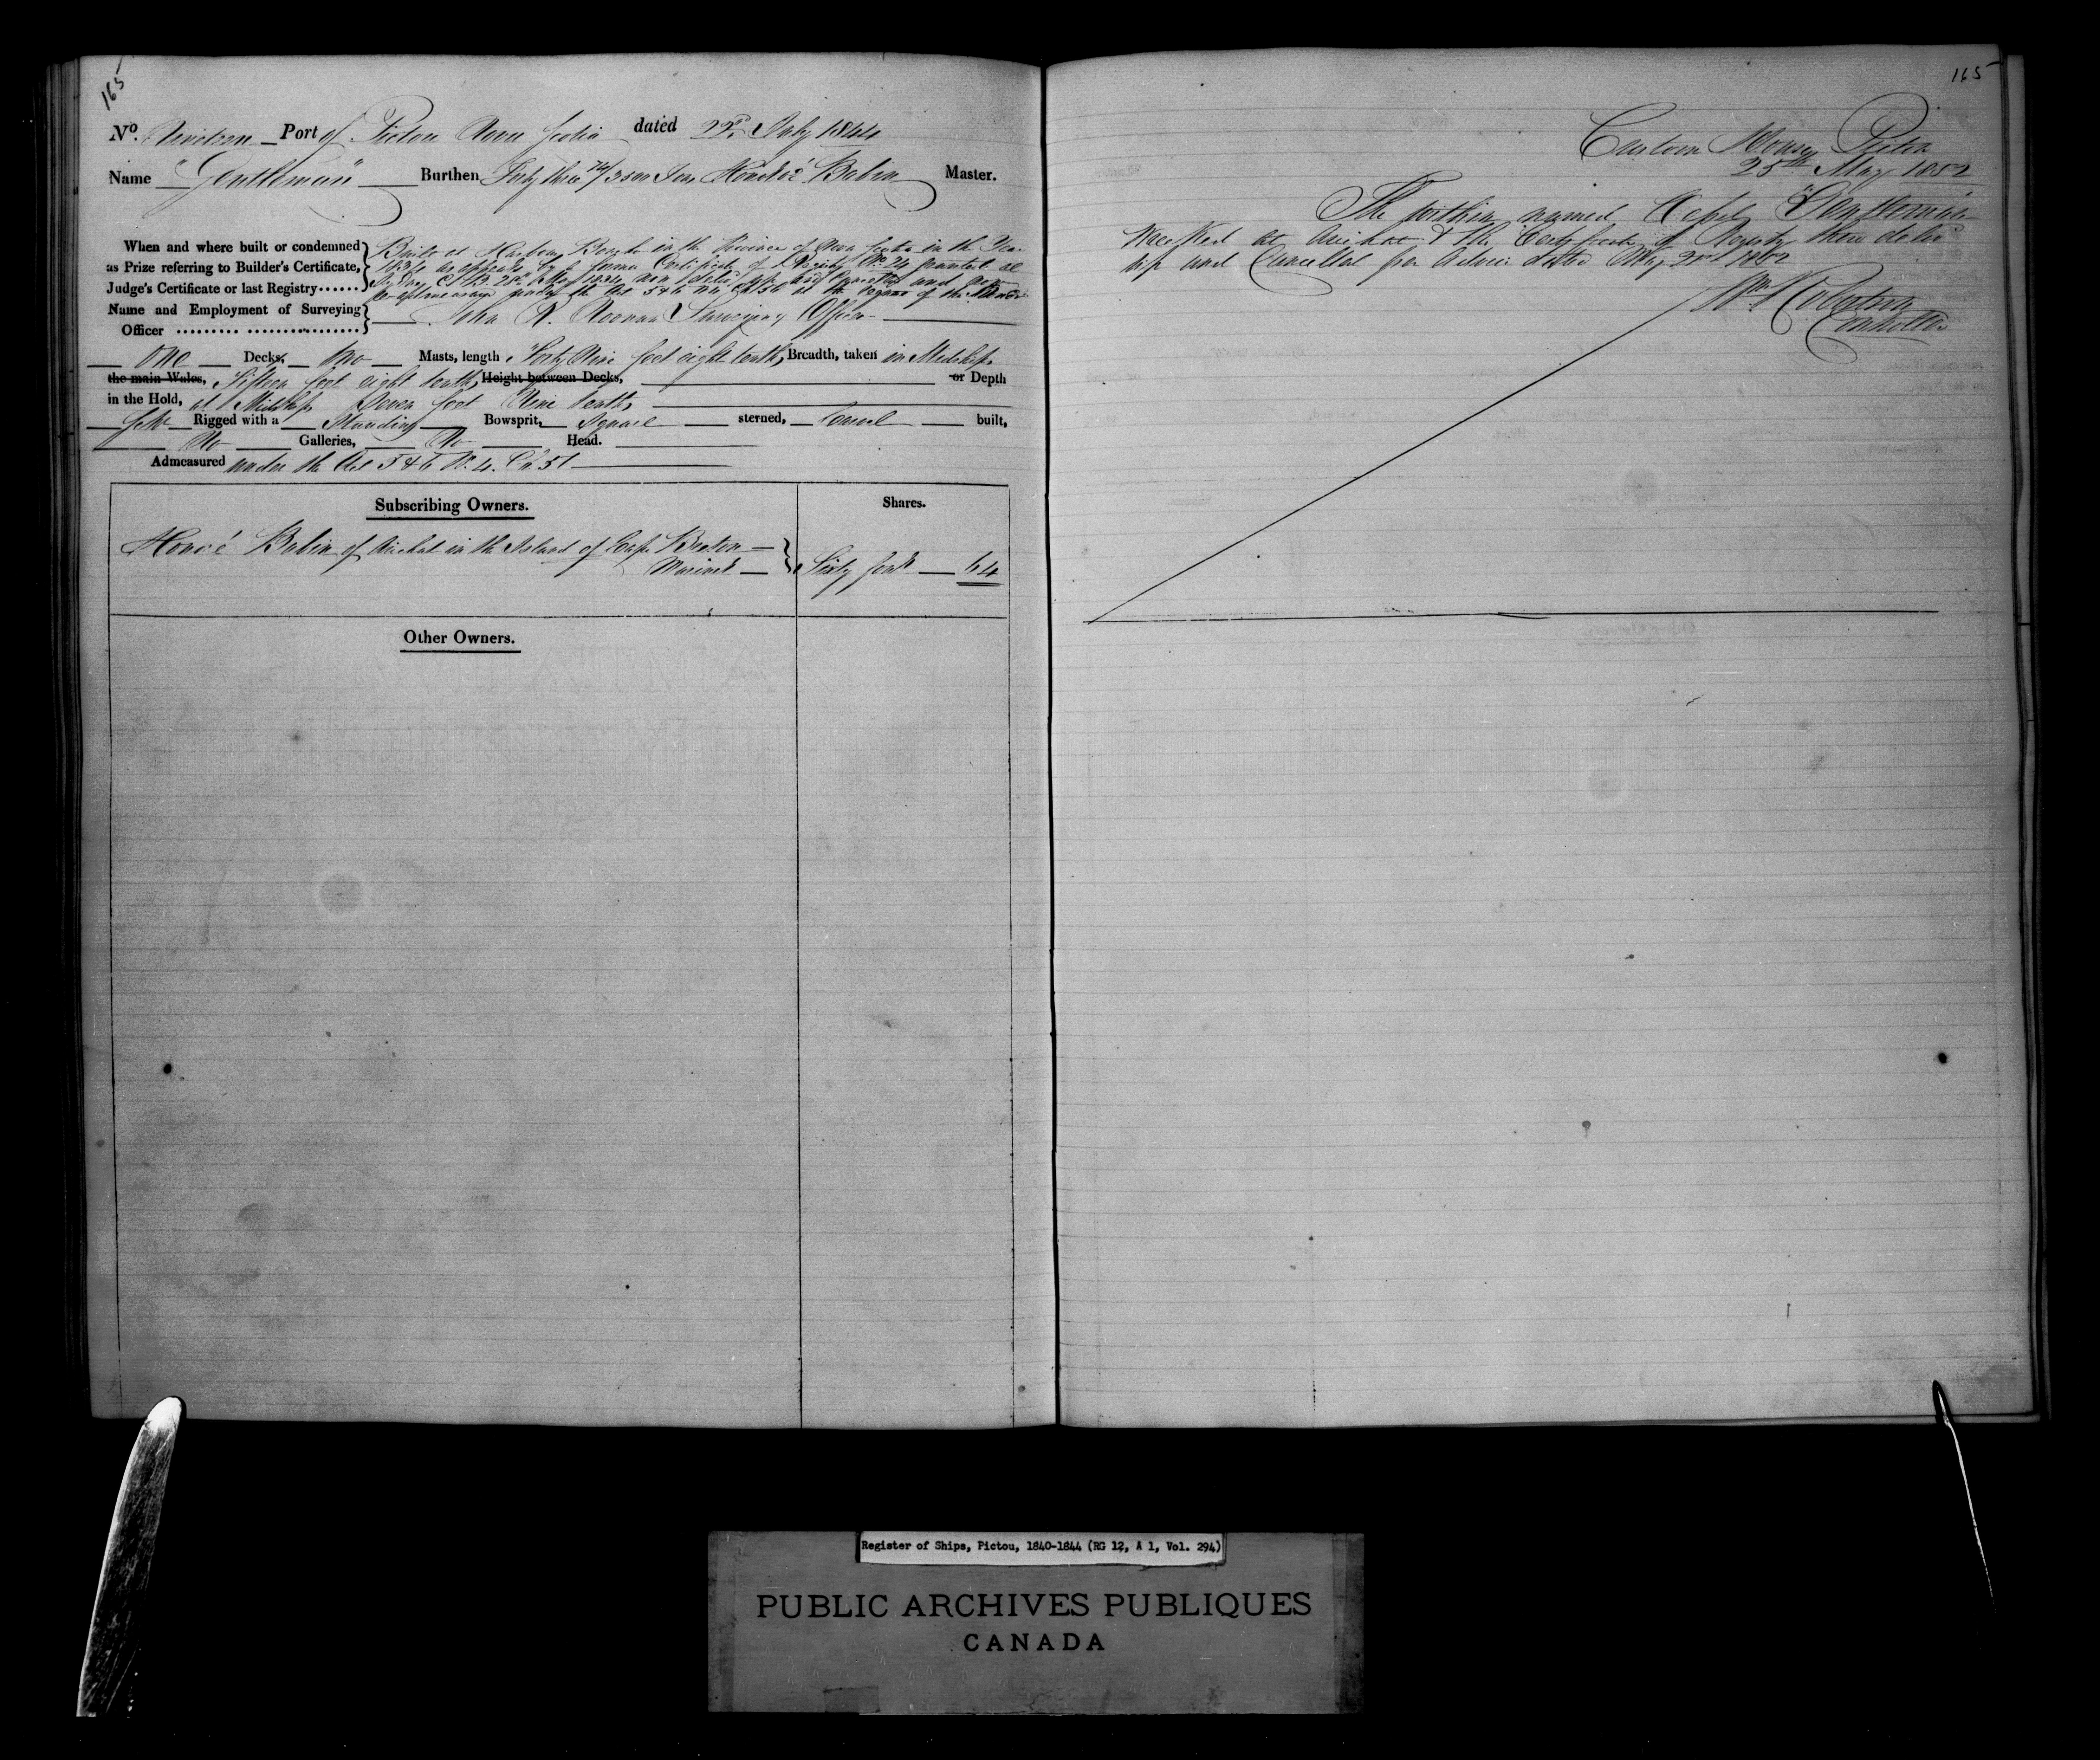 165
No. Nineteen Port of Pictou Nova Scotia dated 22d. July 1844
Name "Gentleman" Burthen Forty three 74/3500 Tons Honoré Babin Master.
When and where built or condemned as Prize referring to Builder's Certificate, Judge's Certificate or last Registry......
Built at Harbour Bouche in the Province of Nova Scotia in the Year
1834 as appears by former Certificate of Registry No. 24 granted at
28th 1834 now delivered up and Cancelled and
the Act 5 & 6 at the request of the Owner
Name and Employment of Surveying Officer ......... ................ John R. Noonan Surveying Officer
One Decks, Two Masts, length Forty Nine feet eight tenths, Breadth, taken in Midships
the main Wales, Fifteen feet eight tenths, Height between Decks, or Depth
in the Hold, at Midships Seven feet Nine tenths
Schr Rigged with a Standing Bowsprit, Square sterned, Carvel built,
No Galleries, No Head.
Admeasured under the Act 5 & 6 W. 4. Ch.
Subscribing Owners. Shares.
Honoré Babin of Arichat in the Island of Cape Breton
Mariner Sixty four 64
Other Owners.
165
Custom House Pictou
25th May 1852
The within named Vessel "Gentleman"
Wrecked at Arichat & the Certificate of Registry there deliv
up and Cancelled per Advice dated May 1852
Wm Robertson
Controller
Register of Ships, Pictou, 1840-1844 (RG 12, A 1, Vol. 294)
PUBLIC ARCHIVES PUBLIQUES
CANADA